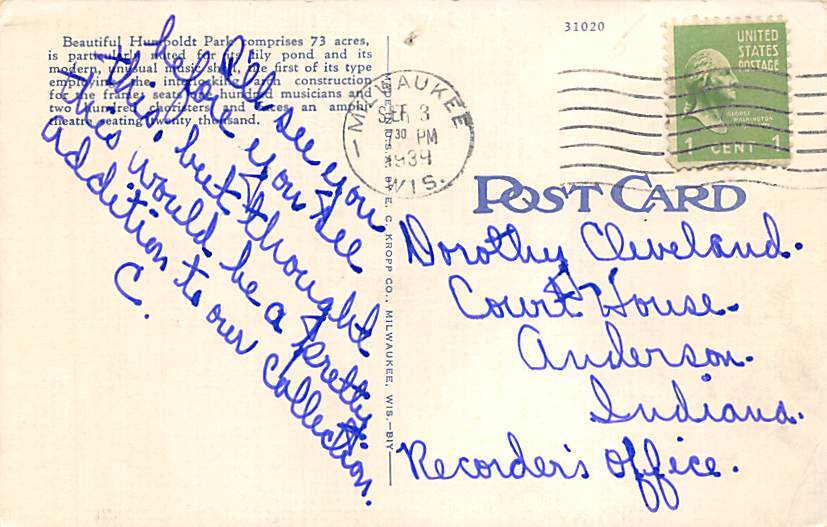 Beautiful Humboldt Park comprises 73 acres,
is particularly noted for its lily pond and its
modern, unusual music shell, the first of its type
employing the interlocking panel construction
for the frame, seats one hundred musicians and
two hundred choristers and faces an amphi-
theatre seating twenty thousand.
I'll see you
before you see
this, but thought
this would be a pretty
addition to our collection.
C.
E. C. KROPP CO., MILWAUKEE, WIS.
31020
MILWAUKEE
SEP 3
30 PM
1939
WIS.
UNITED
STATES
POSTAGE
GEORGE
WASHINGTON
1 CENT 1
POST CARD
Dorothy Cleveland.
Court House.
Anderson.
Indiana.
Recorder's office.